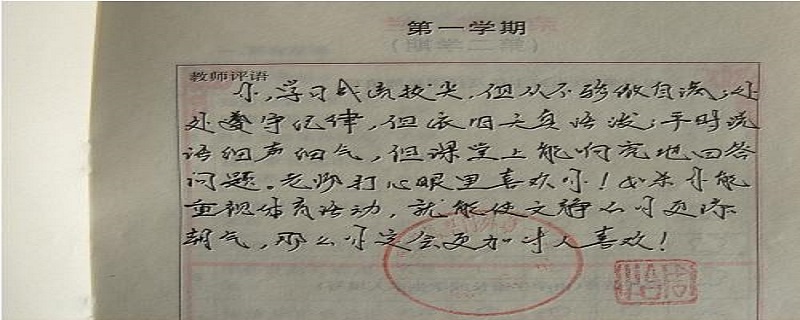 第一学期
教师评语
你,学习成绩拔尖,但从不骄傲自满;处
处遵守纪律,但依旧天真活泼;平时说
语细声细气,但课堂上能响亮地回答
问题。老师打心眼里喜欢你!如果你能
重视体育活动,就能使文静的你更添
朝气,那么你定会更加讨人喜欢!